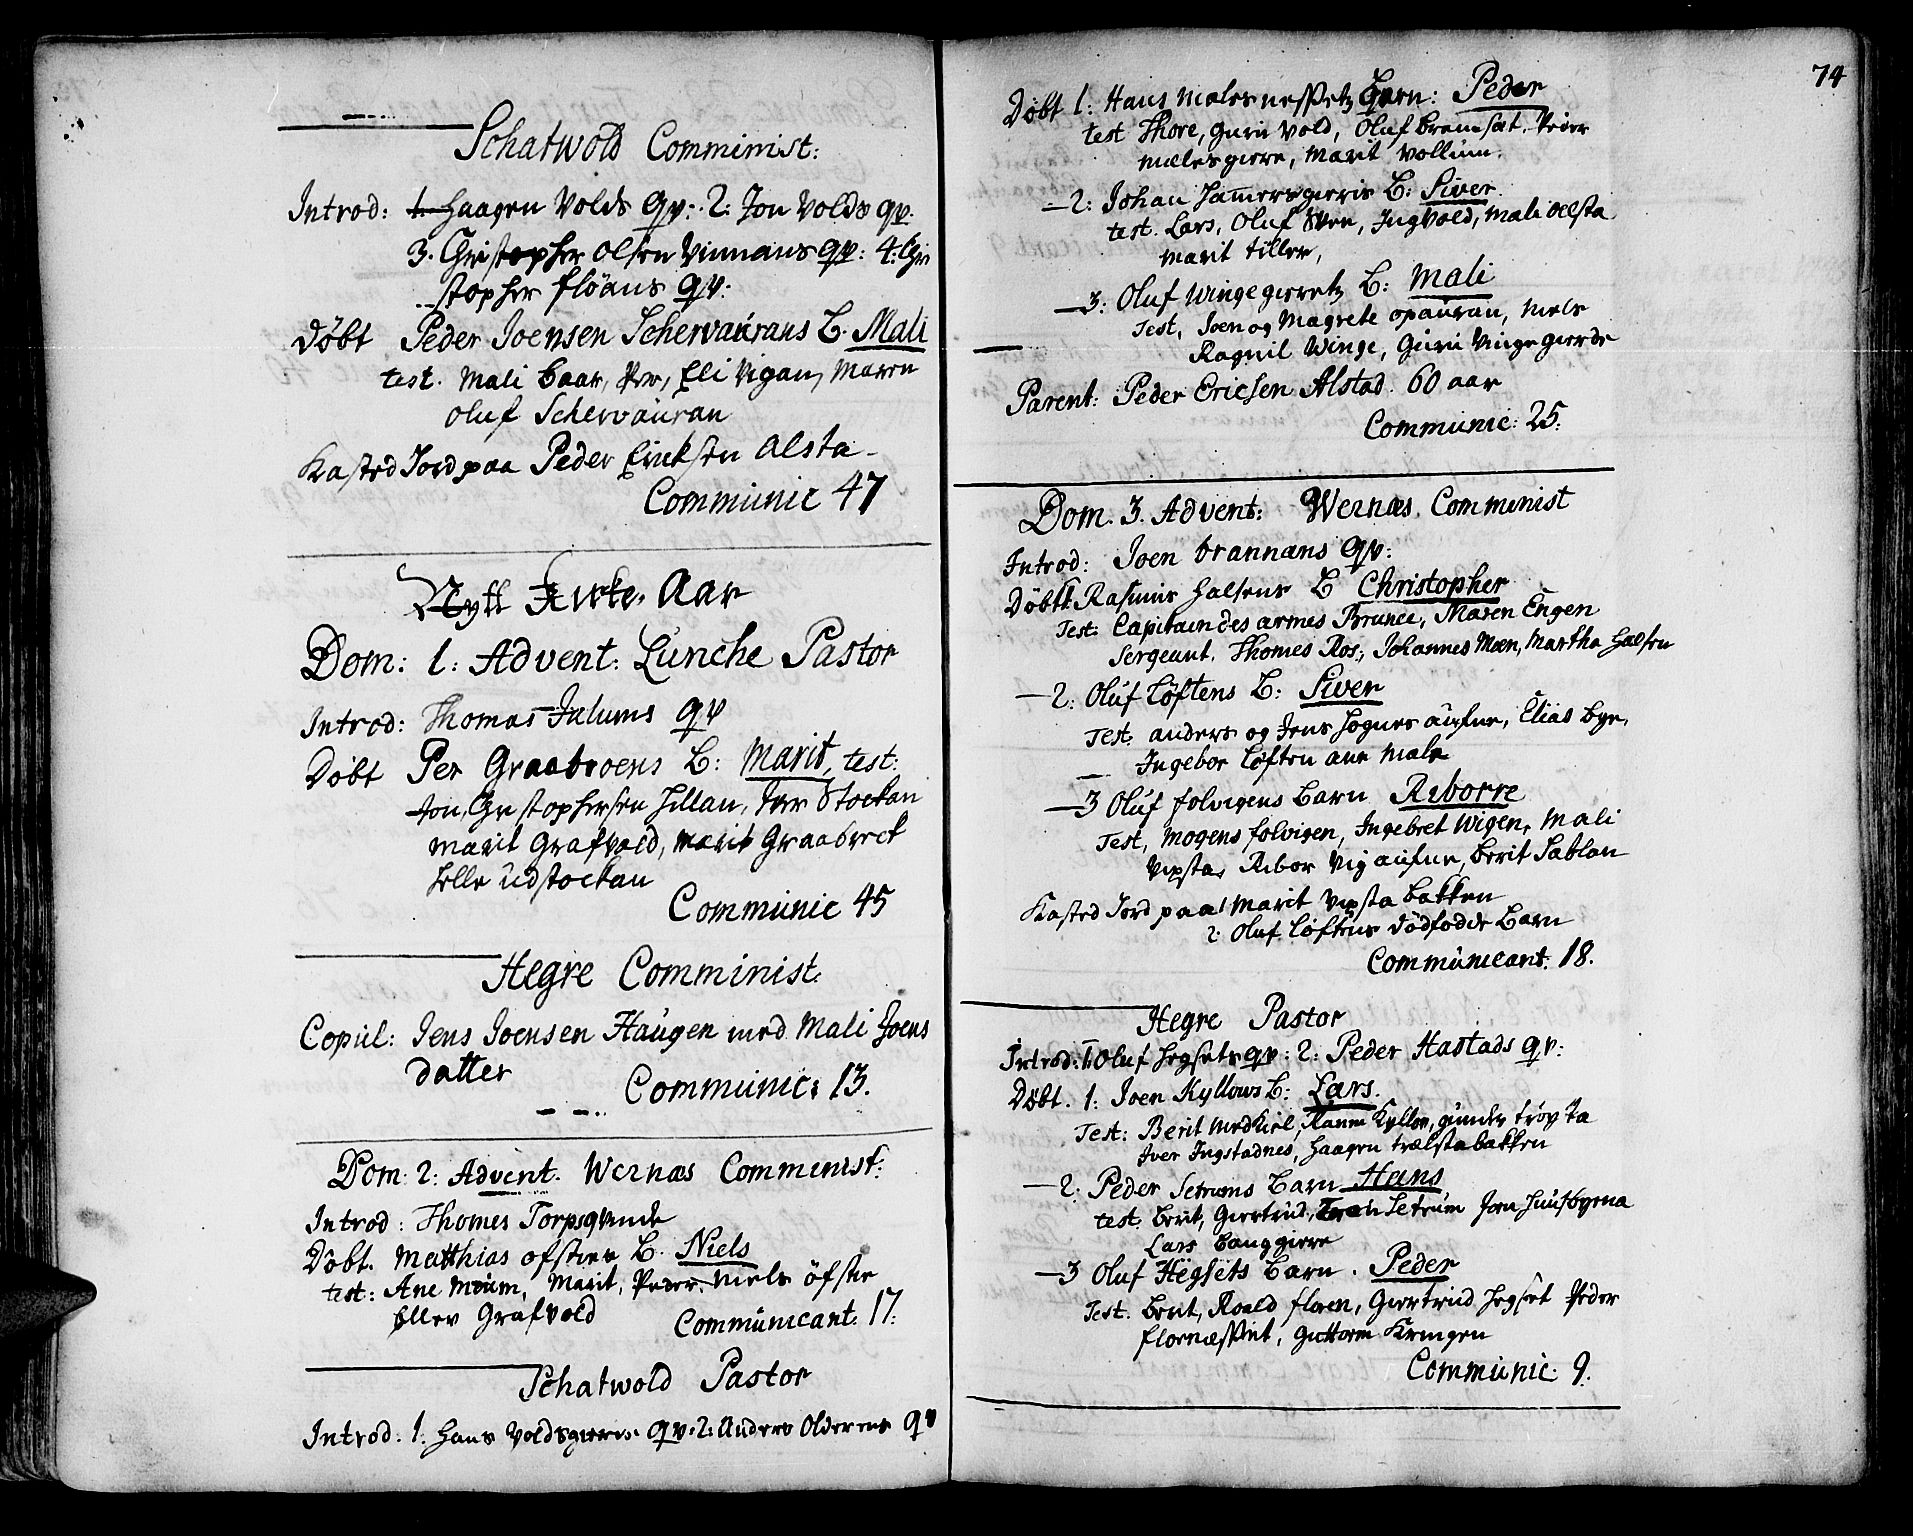 Schatwold Comminist:
Introd: 1. Haagen Volds qv: 2: Jon Volds qv.
3. Christopher Olsen Vinnans qv: 4: Chri
stopher Flöans qv:
Döbt Peder Joensen Schervaúrans B. Mali
test. Mali Baar, Per, Eli Vigan, Maren
Oluf Schervaúran
Kasted Jord paa Peder Eriksen Alsta
Communic 47
Nytt Kirke Aar
Dom: 1: Advent: Lúnche Pastor
Introd: Thomas Julums qv
Döbt Per Graabroens B: Marit, test:
Jon Christophersen Hillan, Iver Stockan
Marit Grafvold, Marit Graabreck
Helle udstockan
Communic 45
Hegre Comminist:
Copul: Jens Joensen Haúgen med Mali Joens
datter
Communic: 13.
Dom: 2: Advent. Wernæs Comminist:
Introd: Thomes Torpsqvinde
Döbt. Matthias ofstier B. Niels
test: Ane Moum, Marit, Peder, Niels öfstie
Ellev Grafvold
Communicant: 17:
Schatwold Pastor
Introd. 1: Hans Voldsgierre. qv. 2: Anders Olderens qv
74
Döbt 1: Hans Melesnesset Barn: Peder
test Thore, Guru Vold, Oluf Bremset. Peder
Mælesgierre, Marit Vollum.
2: Johan Hamersgierris B: Siver
test. Lars, Oluf Steen, Ingvold, Mali Aelsta
Marit Tiller,
3: Oluf Wingegierretz B: Mali
Test, Joen og Magrete opaúran, Niels
Ragnil Winge, Guru Vingegierde
Parent: Peder Ericsen Alstad. 60 aar
Communic: 25.
Dom. 3. Advent: Wernæs. Comminist
Introd: Joen Brannans qv:
Döbt 1 Rasmus Halsens B Christopher
Test: Capitaindesarmes Brunce, Maren Engen
Sergeant. Thomes Ros, Johannes Moen, Martha Halsen
2: Oluf Löftens B: Siver
Test. Anders og Jens Hognesaúne, Elias Bye,
Ingebor Löften Ane Male
3 Oluf Folvigens Barn Reborre
Test, Mogens Folvigen, Ingebret Wigen, Mali
Vepsta, Rebor Vigaúne, Berit Sablan
Kasted Jord paa 1 Marit Vepstabakken
2. Oluf Löftens dödfödde Barn
Communicant: 18.
Hegre Pastor
Introd: 1: Oluf Hegsets qv: 2: Peder Hastads qv:
Döbt. 1: Joen Kyllows B: Lars.
Test: Berit Medkiel, Ranni Kylloe, Gunder Tröyta
Iver Ingstadnes, Haagen Trælstabakken
2: Peder Setrums Barn Hans
test. Berit, Giertrud, Setrum Joen Huusbyma
Lars Banggierre
3 Oluf Hegsets Barn. Peder
Test. Berit, Roald Floren, Giertrud Hegset Peder
Flornæsset, Guttorm Kringen
Communic: 9.